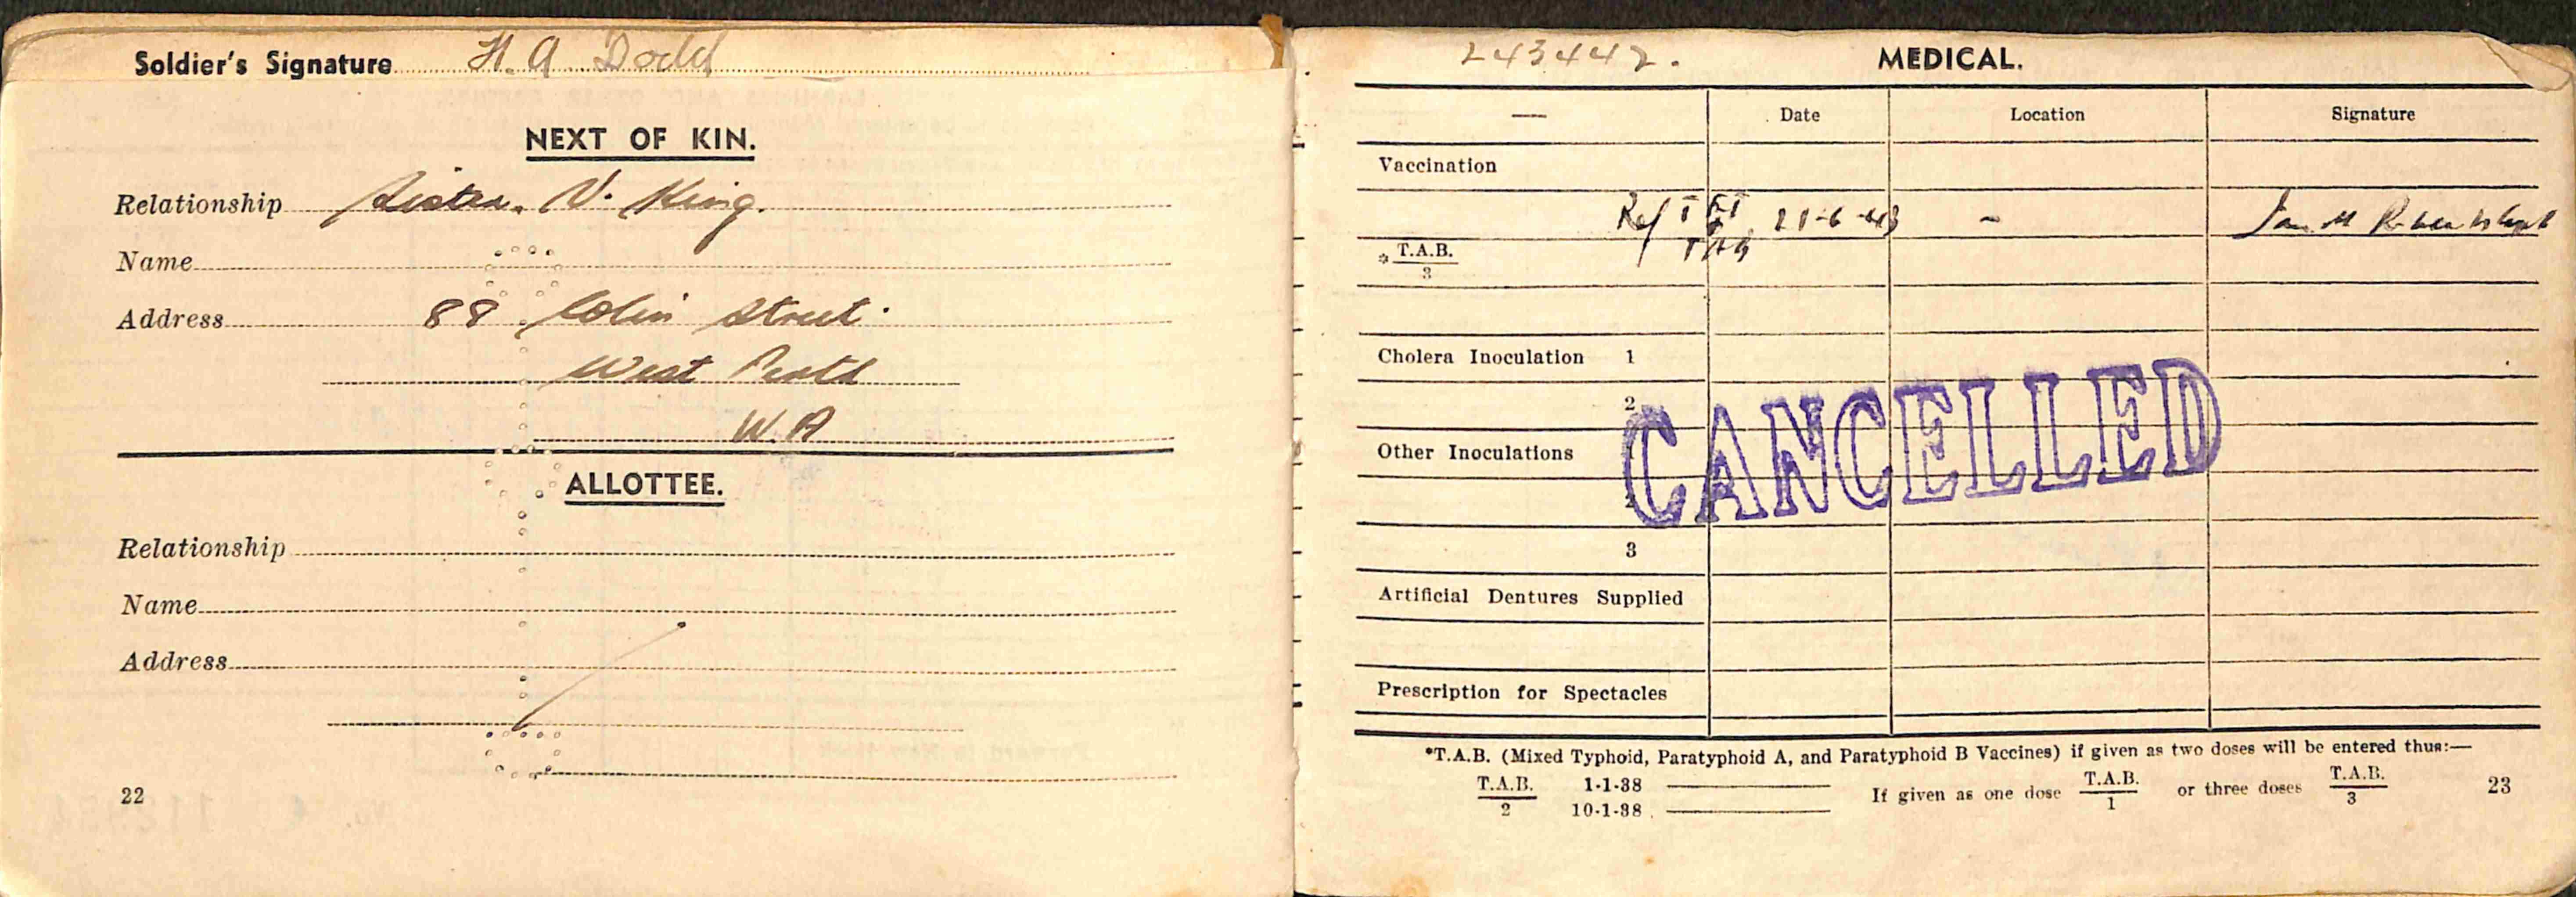 Soldier's Signature H. A Dodd
NEXT OF KIN.
Relationship Sister. V. King.
Name
Address 88 Colin Street.
West Perth
W. A
ALLOTTEE.
Relationship
Name
Address
22
243442. MEDICAL.
— Date Location Signature
Vaccination
Ref T ET 21-6-43 -
T.A.B.
* T.A.B.
3
Cholera Inoculation 1
2
Other Inoculations 1
2
3
CANCELLED
Artificial Dentures Supplied
Prescription for Spectacles
*T.A.B. (Mixed Typhoid, Paratyphoid A, and Paratyphoid B Vaccines) if given as two doses will be entered thus:—
T.A.B. 1-1-38
2 10-1-38
If given as one dose T.A.B. or three doses T.A.B.
1 3
23